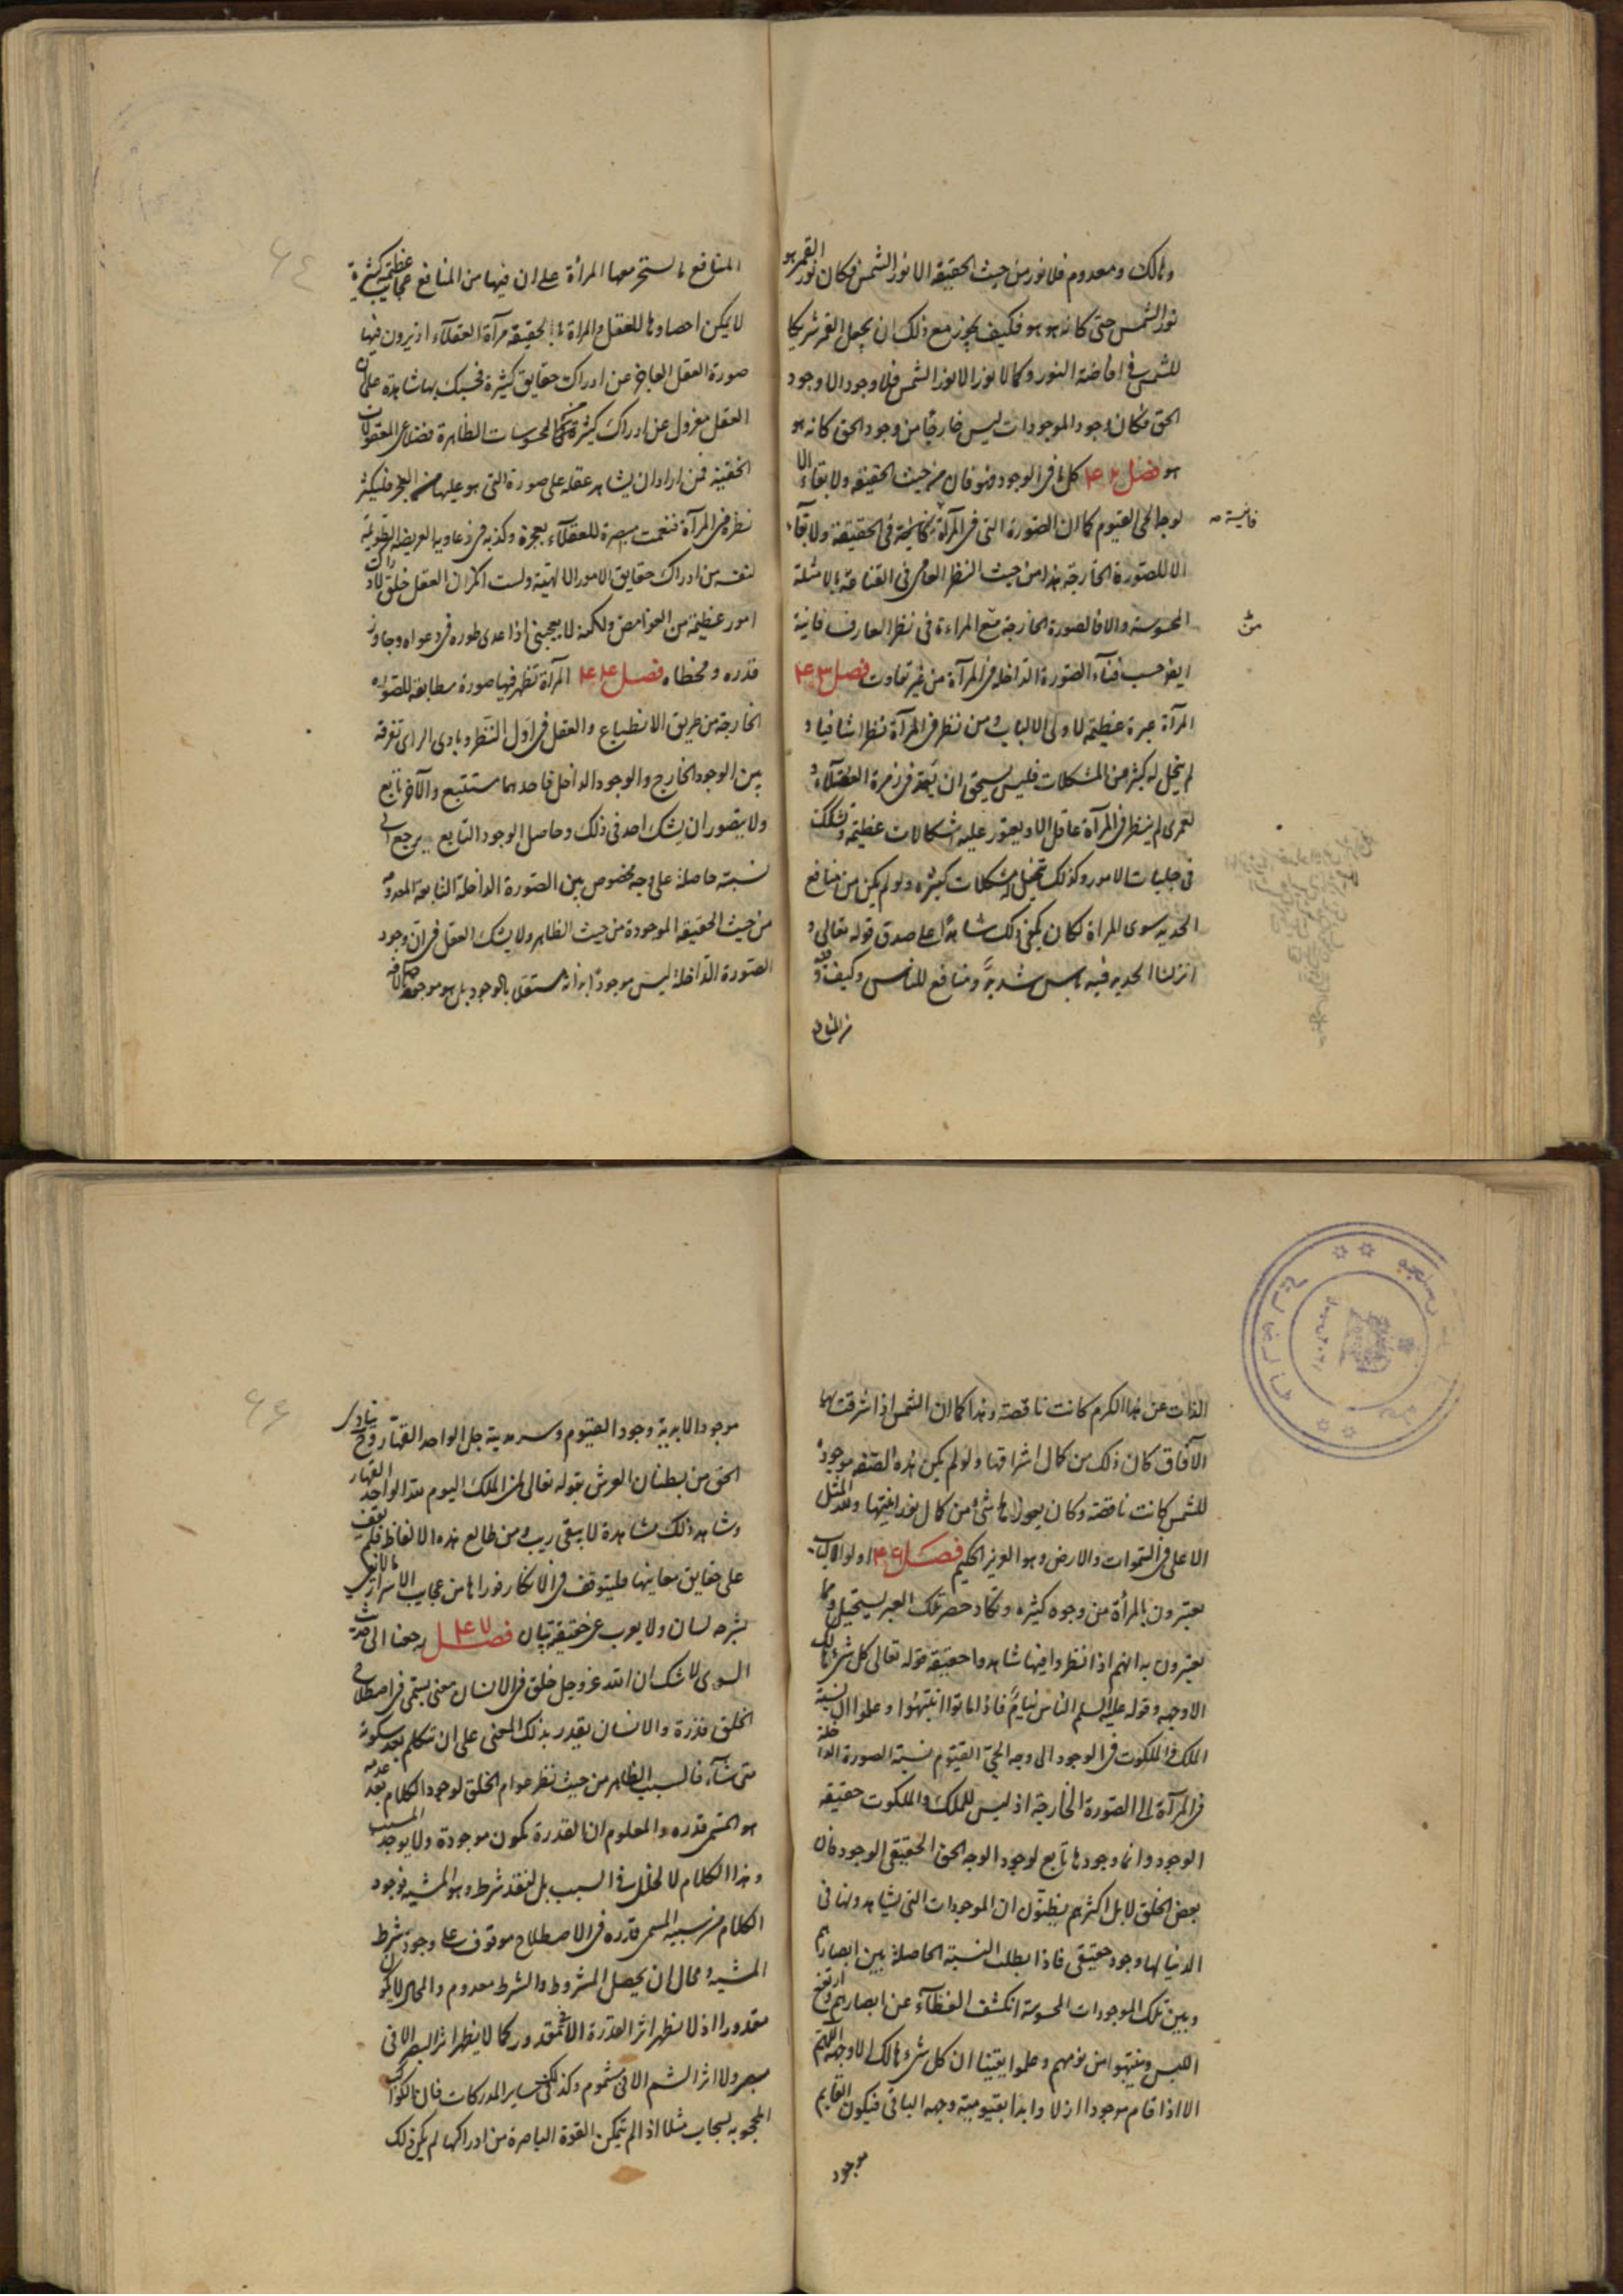 وهالك ومعدوم فلا نور من حيث الحقيقة الا نور الشمس فكان نور القمر هو
نور الشمس حتى كانه هو هو فكيف يجوز مع ذلك ان يجعل القمر شريكا
للشمس في افاضة النور وكما لا نور الا نور الشمس فلا وجود الا وجود
الحق فكان وجود الموجودات ليس خارجا من وجود الحق كانه هو
هو فصل ۴۲ كل ما في الوجود فهو فان من حيث الحقيقة ولا بقاء الا
لوجه الحي القيوم كما ان الصورة التي في المرآة فانية في الحقيقة ولا بقآء
فانية صح
الا للصورة الخارجة هذا من حيث النظر العامي في القناعة بالامثلة
المحسوسة والا فالصورة الخارجة مع المراءة في نظر العارف فانية
ايضا حسب فنآء الصورة الداخلة في المرآة من غير تفاوت فصل ۴۳
المرآة عبرة عظيمة لاولى الالباب ومن نظر في المرآة نظرا شافيا و
لم ينحل له كثير من المشكلات فليس يستحق ان يعد في زمرة العقلآء و
لعمرى لم ينظر في المرآة عاقل الا ويعتور عليه اشكالات عظيمة وتشكك
في جليات الامور وكذلك تنحل له مشكلات كثيره ولو لم يكن من منافع
الحديد سوى المراة لكان يكفي ذلك شاهدا على صدق قوله تعالى و
انزلنا الحديد فيه باس شديد ومنافع للناس وكيف وفيه
من المنافع
المنافع ما يستحقر معها المرأة على ان فيها من المنافع عجائب عظيمة كثيرة
لا يمكن احصاوها للعقل والمراة بالحقيقة مرآة العقلآء اذ يرون فيها
صورة العقل العاجز عن ادراك حقايق كثيرة فحسبك بها شاهدة على ان
العقل معزول عن ادراك كثير من المحسوسات الظاهرة فضلا عن المعقولات
الخفية فمن اراد ان يشاهد عقله على صورة التي هو عليها من العجز فليكثر
نظره في المرآة فنعمت مبصرة للعقلآء بعجزه وكذبه في دعاويه العريضة الطويلة
لنفسه من ادراك حقايق الامور الالهية ولست انكر ان العقل خلق لادراك
امور عظيمة من الغوامض ولكنه لا يعجبني اذا عدى طوره في دعواه وجاوز
قدره ومخطاه فصل ۴۴ المرآة تظهر فيها صورة مطابقة للصورة
الخارجة من طريق الانطباع والعقل في اول النظر وبادى الراى تفرقه
بين الوجود الخارج والوجود الداخل فاحدهما مستتبع والآخر تابع
ولا يتصور ان يشك احد في ذلك وحاصل الوجود التابع يرجع الى
نسبة حاصلة على وجه مخصوص بين الصورة الداخلة التابعة المعدومة
من حيث الحقيقة الموجودة من حيث الظاهر ولا يشك العقل في ان وجود
الصورة الداخلة ليس موجودا بذاته مستقلا بالوجود بل هو موجود
الذات عن هذا الكرم كانت ناقصة وهذا كما ان الشمس اذا اشرقت بها
الآفاق كان ذلك من كمال اشراقها ولو لم يكن هذه الصفة موجودة
للشمس كانت ناقصة وكان يعوزها شئ من كمال نورانيتها ولله المثل
الاعلى في السموات والارض وهو العزيز الحكيم فصل ۴۶ اولو الالباب
يعتبرون بالمرأة من وجوه كثيره وتكاد حصر تلك العبر يستحيل ومما
يعتبرون به انهم اذا نظروا فيها شاهدوا حقيقة قوله تعالى كل شئ هالك
الا وجهه وقوله عليه السلم الناس نيام فاذا ماتوا انتبهوا وعلموا ان نسبة
الملك والملكوت في الوجود الى وجه الحي القيوم نسبة الصورة الداخلة
في المرآة الى الصورة الخارجة اذ ليس للملك والملكوت حقيقة
الوجود وانما وجودها تابع لوجود الوجه الحق الحقيقي الوجود فان
بعض الخلق لا بل اكثرهم يظنون ان الموجودات التي يشاهدونها في
الدنيا لها وجود حقيقي فاذا بطلت النسبة الحاصلة بين ابصارهم
وبين تلك الموجودات المحسوسة انكشف الغطآء عن ابصارهم وارتفع
اللبس وينتبهوا من نومهم وعلموا يقينا ان كل شئ هالك الا وجهه اللهم
الا اذا قام موجودا ازلا وابدا بقيومية وجهه الباقي فيكون القايم
موجود
موجودا لابدية وجود القيوم وسرمدية جل الواحد القهار وح ينادى
الحق من بطنان العرش بقوله تعالى لمن الملك اليوم لله الواحد القهار
وشاهد ذلك مشاهدة لا يبقى ريب ومن طالع هذه الالفاظ فلم يقف
على حقايق معانيها فليتوقف في الانكار فوراها من عجايب الاسرار ما لا يفى
بشرحه لسان ولا يعرب عن حقيقته بيان فصل ۴۷ رجعنا الى حديث
السوى لا شك ان الله عز وجل خلق في الانسان معنى يسمى في اصطلاح
الخلق قدرة والانسان يقدر بذلك المعنى على ان يتكلم بعد سكوته
متى شآء فالسبب الظاهر من حيث نظر عوام الخلق لوجود الكلام بعد عدمه
هو المسمى قدره والمعلوم ان القدرة يكون موجودة ولا يوجد المسبب
وهذا الكلام لا لخلل في السبب بل لفقد شرط وهو المشية فوجود
الكلام من سببه المسمى قدره في الاصطلاح موقوف على وجود شرط
المشية ومحال ان يحصل المشروط والشرط معدوم والمحال لا يكون
مقدورا اذ لا يظهر اثر القدرة الا في مقدور كما لا يظهر اثر البصر الا في
مبصر ولا اثر الشم الا في مشموم وكذلك في ساير المدركات فان الكواكب
المحجوبه بسحاب مثلا اذا لم يتمكن القوة الباصرة من ادراكها لم يكن ذلك